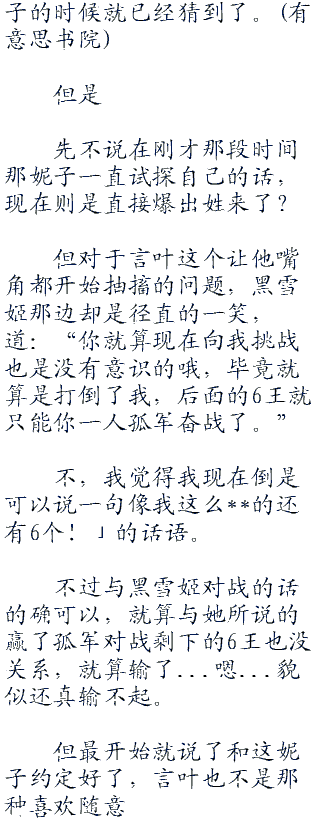 子的时候就已经猜到了。(有
意思书院)
但是
先不说在刚才那段时间
那妮子一直试探自己的话，
现在则是直接爆出姓来了？
但对于言叶这个让他嘴
角都开始抽搐的问题，黑雪
姬那边却是径直的一笑，
道：“你就算现在向我挑战
也是没有意识的哦，毕竟就
算是打倒了我，后面的6王就
只能你一人孤军奋战了。”
不，我觉得我现在倒是
可以说一句像我这么**的还
有6个！」的话语。
不过与黑雪姬对战的话
的确可以，就算与她所说的
赢了孤军对战剩下的6王也没
关系，就算输了...嗯...貌
似还真输不起。
但最开始就说了和这妮
子约定好了，言叶也不是那
种喜欢随意